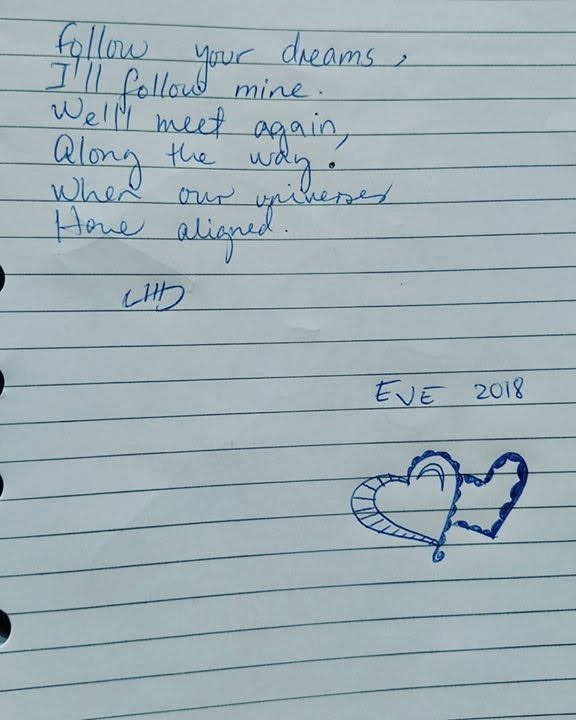 Follow your dreams,
I'll follow mine.
We'll meet again,
Along the way.
When our universes
Have aligned.
LHD
EVE 2018